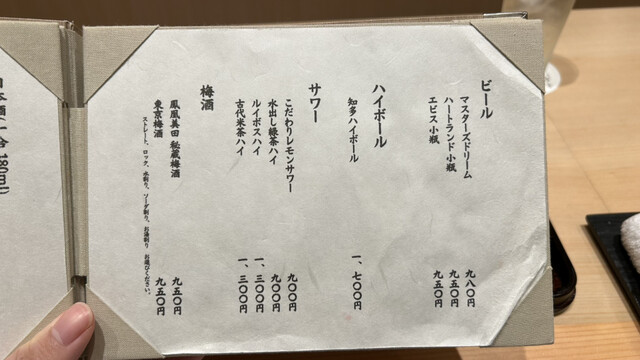 ビール
マスターズドリーム 九八〇円
ハートランド小瓶 九五〇円
エビス小瓶 九五〇円
ハイボール
知多ハイボール 一、七〇〇円
サワー
こだわりレモンサワー 九〇〇円
水出し緑茶ハイ 九〇〇円
ルイボスハイ 一、三〇〇円
古代米茶ハイ 一、三〇〇円
梅酒
鳳凰美田 秘蔵梅酒 九五〇円
東京梅酒 九五〇円
ストレート、ロック、水割り、ソーダ割り、お湯割り お選びください。
日本酒一合(180ml)